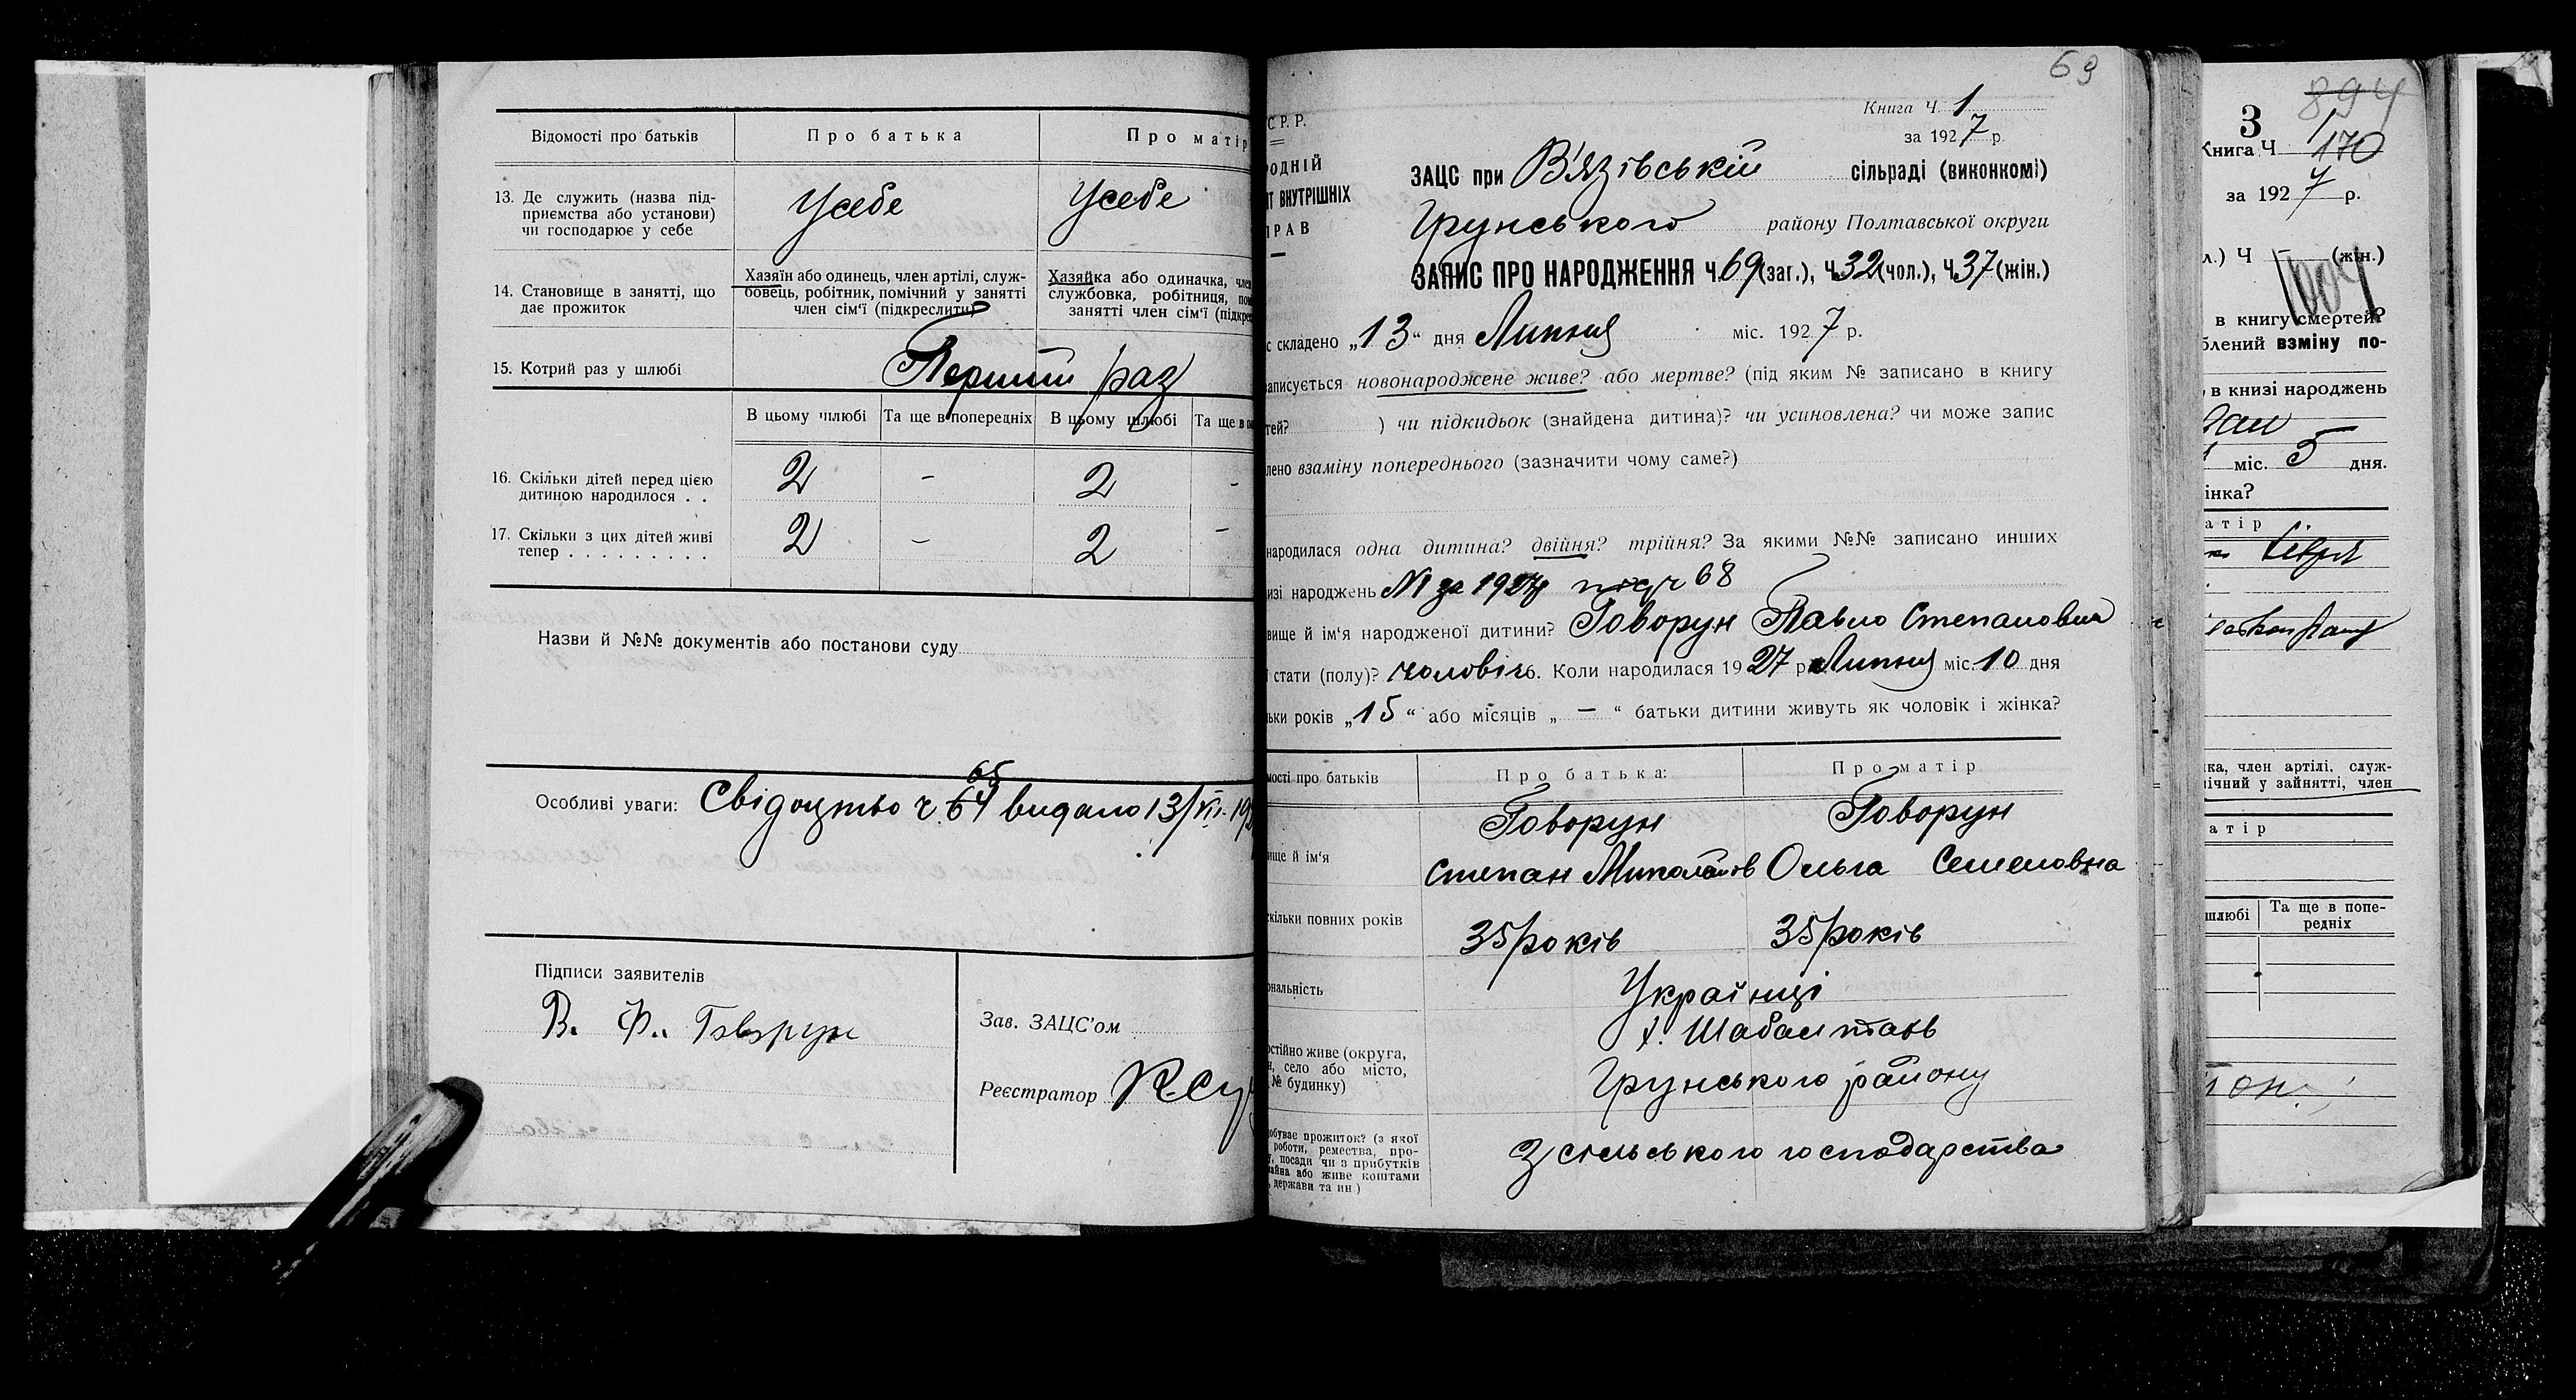 Відомості про батьків
Про батька
Про матір
13. Де служить (назва під-
приємства або установи)
чи господарює у себе
Усебе
Усебе
14. Становище в занятті, що
дає прожиток
Хазяїн або одинець, член артілі, служ-
бовець, робітник, помічний у занятті
член сім'ї (підкреслити)
Хазяйка або одиначка, член
службовка, робітниця, по
занятті член сім'ї (підкре
15. Котрий раз у шлюбі
Перший раз
В цьому шлюбі
Та ще в попередніх
В цьому шлюбі
Та ще в по
16. Скільки дітей перед цією
дитиною народилося . .
2 - 2 -
17. Скільки з цих дітей живі
тепер . . . . . . . . .
2 - 2 -
Назви й №№ документів або постанови суду
65
Особливі уваги: Свідоцтво ч. 64 видано 13/VII. 192
Підписи заявителів
В. Ф. Говорун
Зав. ЗАЦС'ом
Реєстратор
69
Книга Ч. 1
за 1927 р.
С.Р.Р.
РОДНІЙ
ІТ ВНУТРІШНІХ
ПРАВ
ЗАЦС при В'язівській сільраді (виконкомі)
Грунського району Полтавської округи
ЗАПИС ПРО НАРОДЖЕННЯ Ч. 69 (заг.), Ч. 32 (чол.), Ч. 37 (жін.)
с складено „13“ дня Липня міс. 1927 р.
аписується новонароджене живе? або мертве? (під яким № записано в книгу
тей? ) чи підкидьок (знайдена дитина)? чи усиновлена? чи може запис
лено взаміну попереднього (зазначити чому саме?)
народилася одна дитина? двійня? трійня? За якими №№ записано инших
изі народжень №1 за 1927 ч 68
вище й ім'я народженої дитини? Говорун Павло Степанович
ї стати (полу)? чоловіч. 6. Коли народилася 1927 р. Липня міс. 10 дня
ьки років „15“ або місяців „—“ батьки дитини живуть як чоловік і жінка?
мості про батьків
Про батька:
Про матір
ище й ім'я
Говорун
Степан Миколайов
Говорун
Ольга Семеновна
скільки повних років
35 років
35 років
ональність
Українці
остійно живе (округа,
н, село або місто,
№ будинку)
х. Шабалтаїв
Грунського району
обуває прожиток? (з якої
роботи, ремества, про-
, посади чи з прибутків
айна або живе коштами
, держави та ин)
З сільського господарства
894
3
Книга Ч 1/170
за 1927 р.
л.) Ч (жін.)
в книгу смертей?
блений взміну по-
, в книзі народжень
міс. 5 дня.
інка?
атір
ка, член артілі, служ-
ічний у зайнятті, член
атір
шлюбі
Та ще в попе-
редніх